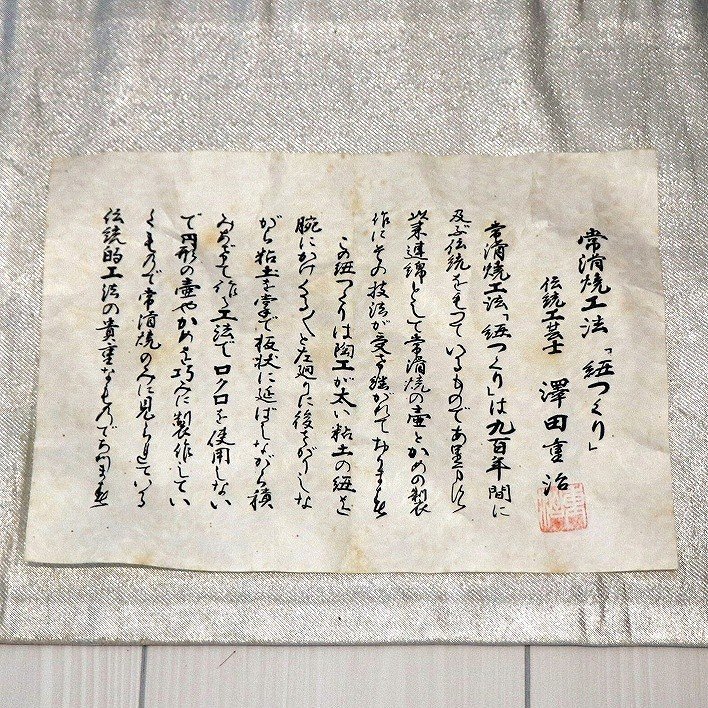 常滑焼工法「紐つくり」
伝統工芸士 澤田重治
常滑焼工法「紐つくり」は九百年間に
及ぶ伝統をもつているものであ
以来連綿として常滑焼の壷とかめの製
作にその技法が受け継がれております
この紐つくりは陶工が太い粘土の紐を
腕にかけくるくと左廻りに後ずさりしな
がら粘土を掌で板状に延ばしながら積
みあげて作る工法でロクロを使用しない
で円形の壷やかめを巧みに製作してい
くもので常滑焼のみに見られている
伝統的工法の貴重なものであります